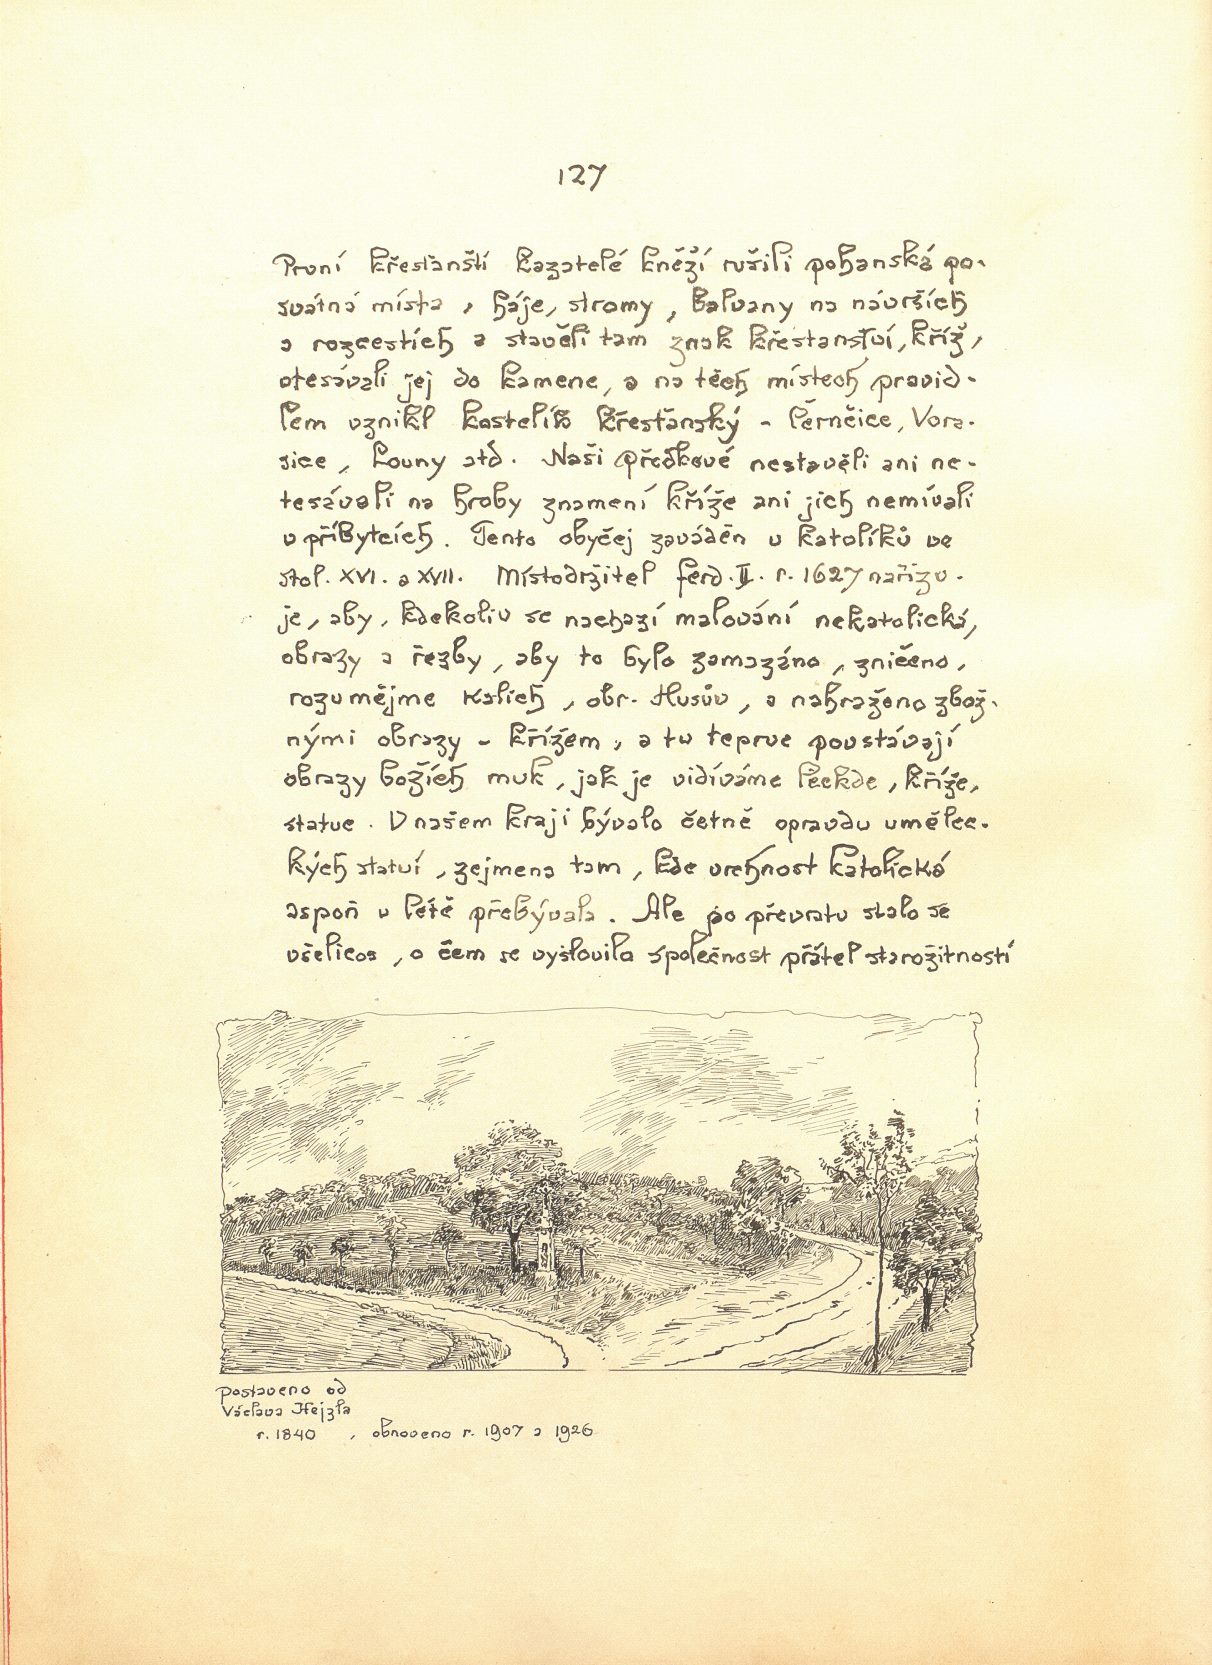 127
První křesťanští kazatelé kněží rušili pohanská po-
svátná místa, háje, stromy, balvany na návrších
a rozcestích a stavěli tam znak křestanství, kříž,
otesávali jej do kamene, a na těch místech pravid-
lem vznikl kostelík křesťanský - Černčice, Vora-
sice, Louny atd. Naši předkové nestavěli ani ne-
tesávali na hroby znamení kříže ani jich nemívali
v příbytcích. Tento obyčej zaváděn u katolíků ve
stol. XVI. a XVII. Místodržitel Ferd. II. r. 1627 nařizu-
je, aby, kdekoliv se nachazí malování nekatolická,
obrazy a řezby, aby to bylo zamazáno, zničeno,
rozumějme kalich, obr. Husův, a nahraženo zbož-
nými obrazy - křížem, a tu teprve povstávají
obrazy božích muk, jak je vidíváme leckde, kříže,
statue. V našem kraji bývalo četně opravdu umělec-
kých statuí, zejmena tam, kde vrchnost katolická
aspoň v létě přebývala. Ale po převratu stalo se
všelicos, o čem se vyslovila společnost přátel starožitností
postaveno od
Václava Hejzla
r. 1840, obnoveno r. 1907 a 1926